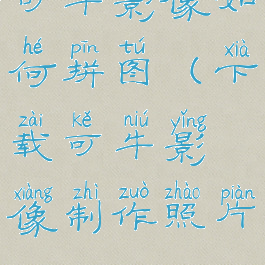 可牛影像如
hé pīn tú xià
何拼图（下
zài kě niú yǐng
载可牛影
xiàng zhì zuò zhào piàn
像制作照片